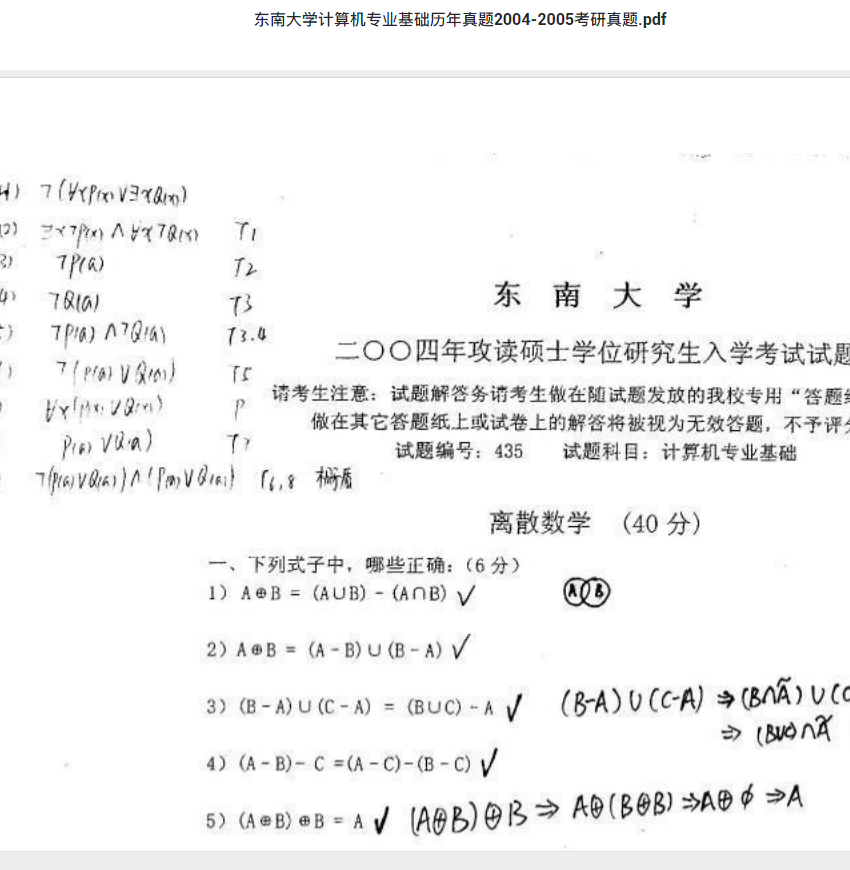 东南大学计算机专业基础历年真题2004-2005考研真题.pdf
¬(∀xP(x)∨∃xQ(x))
2) ∃x¬P(x)∧∀x¬Q(x) T1
3) ¬P(a) T2
4) ¬Q(a) T3
¬P(a)∧¬Q(a) T3.4
¬(P(a)∨Q(a)) T5
∀x(P(x)∨Q(x)) P
P(a)∨Q(a) T7
¬(P(a)∨Q(a))∧(P(a)∨Q(a)) T6,8 矛盾
东 南 大 学
二〇〇四年攻读硕士学位研究生入学考试试题
请考生注意：试题解答务请考生做在随试题发放的我校专用“答题
做在其它答题纸上或试卷上的解答将被视为无效答题，不予评
试题编号：435 试题科目：计算机专业基础
离散数学 （40 分）
一、下列式子中，哪些正确：（6 分）
1) A⊕B = (A∪B) - (A∩B) ✓ A B
2) A⊕B = (A - B)∪(B - A) ✓
3) (B - A)∪(C - A) = (B∪C) - A ✓ (B-A)∪(C-A) ⇒ (B∩Ã)∪(C
⇒ (B∪C)∩Ã
4) (A - B) - C =(A - C)-(B - C) ✓
5) (A⊕B)⊕B = A ✓ (A⊕B)⊕B ⇒ A⊕(B⊕B) ⇒A⊕ϕ ⇒A